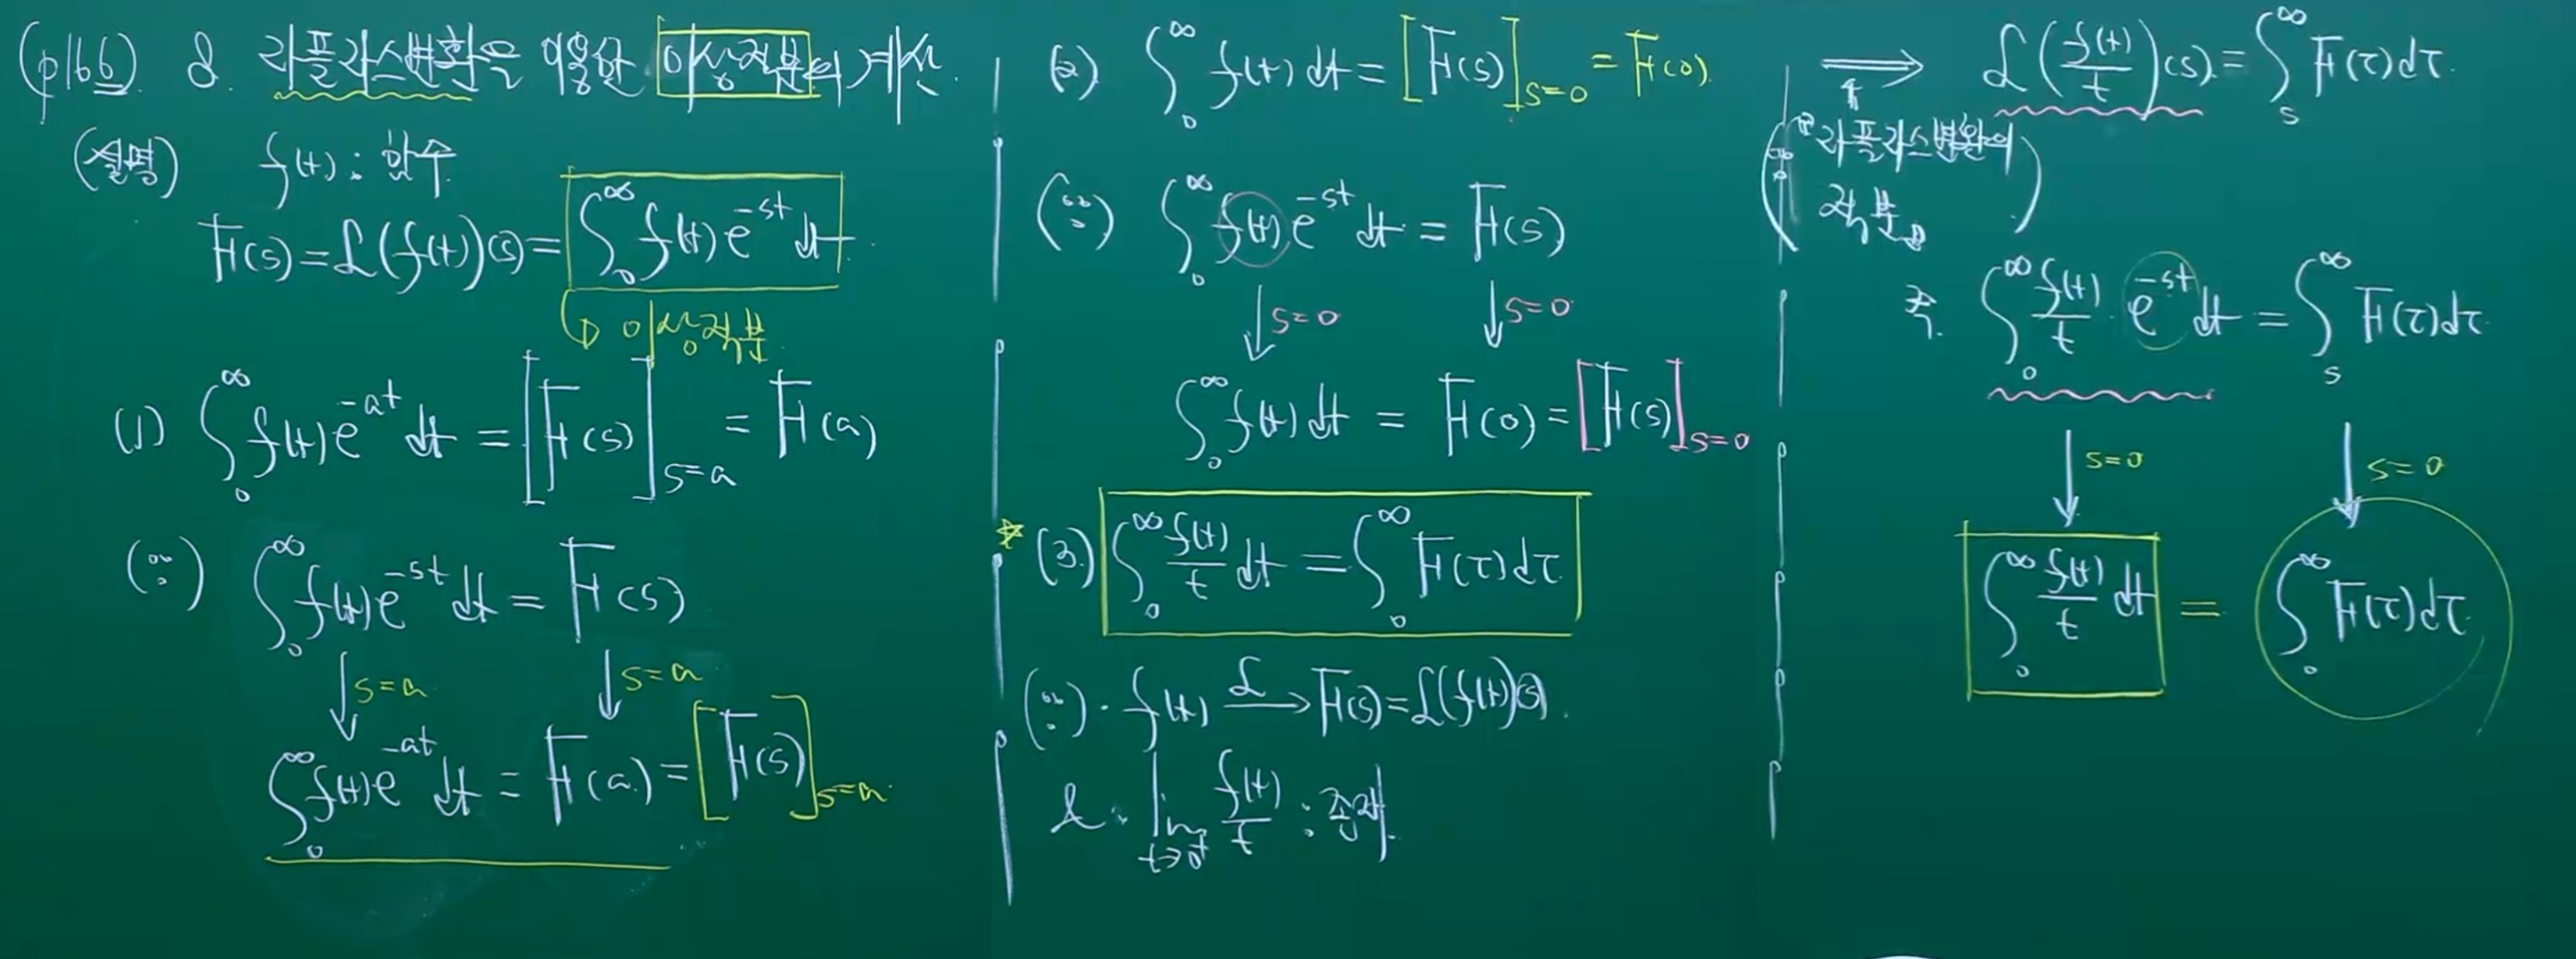 (p166). 8. 라플라스변환을 이용한 이상적분의 계산.
(설명) f(t) : 함수
F(s) = ℒ(f(t))(s) = ∫₀^∞ f(t) e^{-st} dt
↳ 이상적분
(1) ∫₀^∞ f(t) e^{-at} dt = [F(s)]_{s=a} = F(a)
(∵) ∫₀^∞ f(t) e^{-st} dt = F(s)
↓ s=a ↓ s=a
∫₀^∞ f(t) e^{-at} dt = F(a) = [F(s)]_{s=a}
(2) ∫₀^∞ f(t) dt = [F(s)]_{s=0} = F(0).
(∵) ∫₀^∞ f(t) e^{-st} dt = F(s)
↓ s=0 ↓ s=0
∫₀^∞ f(t) dt = F(0) = [F(s)]_{s=0}
☆ (3) ∫₀^∞ f(t)/t dt = ∫₀^∞ F(τ) dτ
(∵) · f(t) —ℒ→ F(s) = ℒ(f(t))(s).
& · lim_{t→0⁺} f(t)/t : 존재.
⟹ ℒ(f(t)/t)(s) = ∫_s^∞ F(τ) dτ.
↑
(∵ 라플라스변환의
적분)
즉. ∫₀^∞ f(t)/t · e^{-st} dt = ∫_s^∞ F(τ) dτ
↓ s=0 ↓ s=0
∫₀^∞ f(t)/t dt = ∫₀^∞ F(τ) dτ